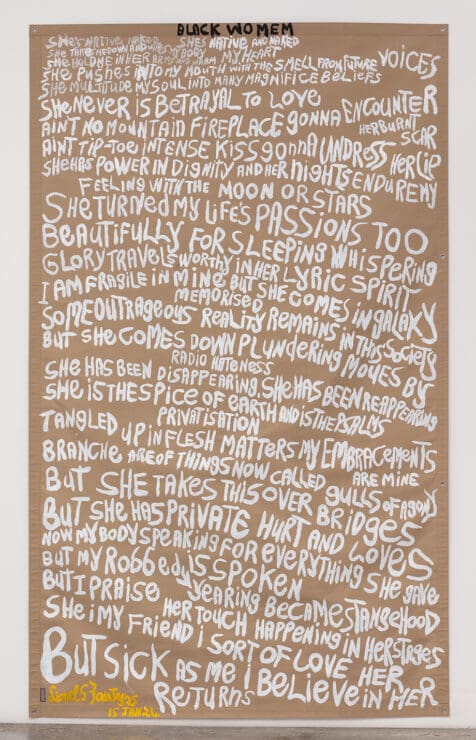 BLACK WOMEM
SHE'S NATIVE NAKED SHE'S NATIVE AND NAKED
SHE TAKES ME DOWN AND WIPES MY BODY MY HEART
SHE HOLD ONE IN HER ARMS AND WARM
SHE PUSHES INTO MY MOUTH WITH THE SMELL FROM FUTURE VOICES
SHE MULTITUDE MY SOUL INTO MANY MAGNIFICE BELIEFS
SHE NEVER IS BETRAYAL TO LOVE
AIN'T NO MOUNTAIN FIREPLACE gONNA ENCOUNTER
HER BURNT SCAR
AINT TIP-TOE INTENSE KISS gONNA UNDRESS HER LIP
SHE HAS POWER IN DIGNITY AND HER NIGHTS ENDUREMY
FEELING WITH THE MOON OR STARS
SHE TURNED MY LIFE'S PASSIONS TOO
BEAUTIFULLY FOR SLEEPING WHISPERING
GLORY TRAVELS WORTHY IN HER LYRIC SPIRIT
I AM FRAGILE IN MINE BUT SHE COMES IN GALAXY
MEMORISED
SOME OUTRAGEOUS REALITY REMAINS IN THIS SOCIETY
BUT SHE COMES DOWN PLUNDERING MOVES BY
RADIO NATENESS
SHE HAS BEEN DISAPPEARING SHE HAS BEEN REAPPEARING
SHE IS THE SPICE OF EARTH AND IS THE PSALMS
PRIVATISATION
TANGLED UP IN FLESH MATTERS MY EMBRACEMENTS
BRANCHE ARE OF THINGS NOW CALLED ARE MINE
BUT SHE TAKES THIS OVER GULLS OF AGONY
BUT SHE HAS PRIVATE HURT AND LOVES BRIDGES
NOW MY BODY SPEAKING FOR EVERYTHING SHE GAVE
BUT MY RObbed IS SPOKEN
BUT I PRAISE YEARING BECAMES TANGEHOOD
HER TOUCH HAPPENING IN HER STAGES
SHE i MY FRIEND I SORT OF LOVE HER
BUT SICK AS ME I BELIEVE IN HER
RETURNS
15 JAN 24